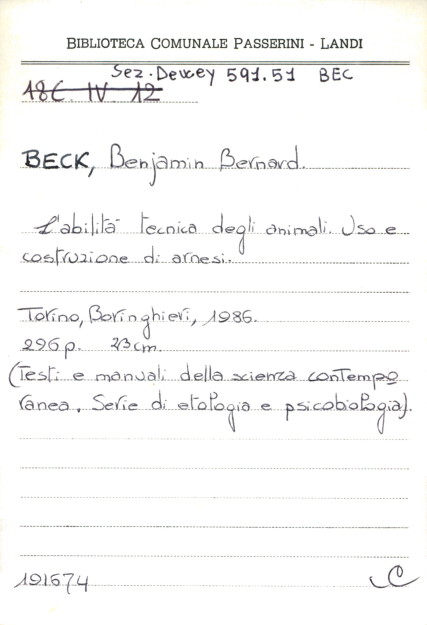 BIBLIOTECA COMUNALE PASSERINI - LANDI
Sez. Dewey 591.51 BEC
18C. IV. 12
BECK, Benjamin Bernard.
L'abilità tecnica degli animali. Uso e
costruzione di arnesi.
Torino, Boringhieri, 1986.
296 p. 23 cm.
(Testi e manuali della scienza contempo
ranea. Serie di etologia e psicobiologia).
191674